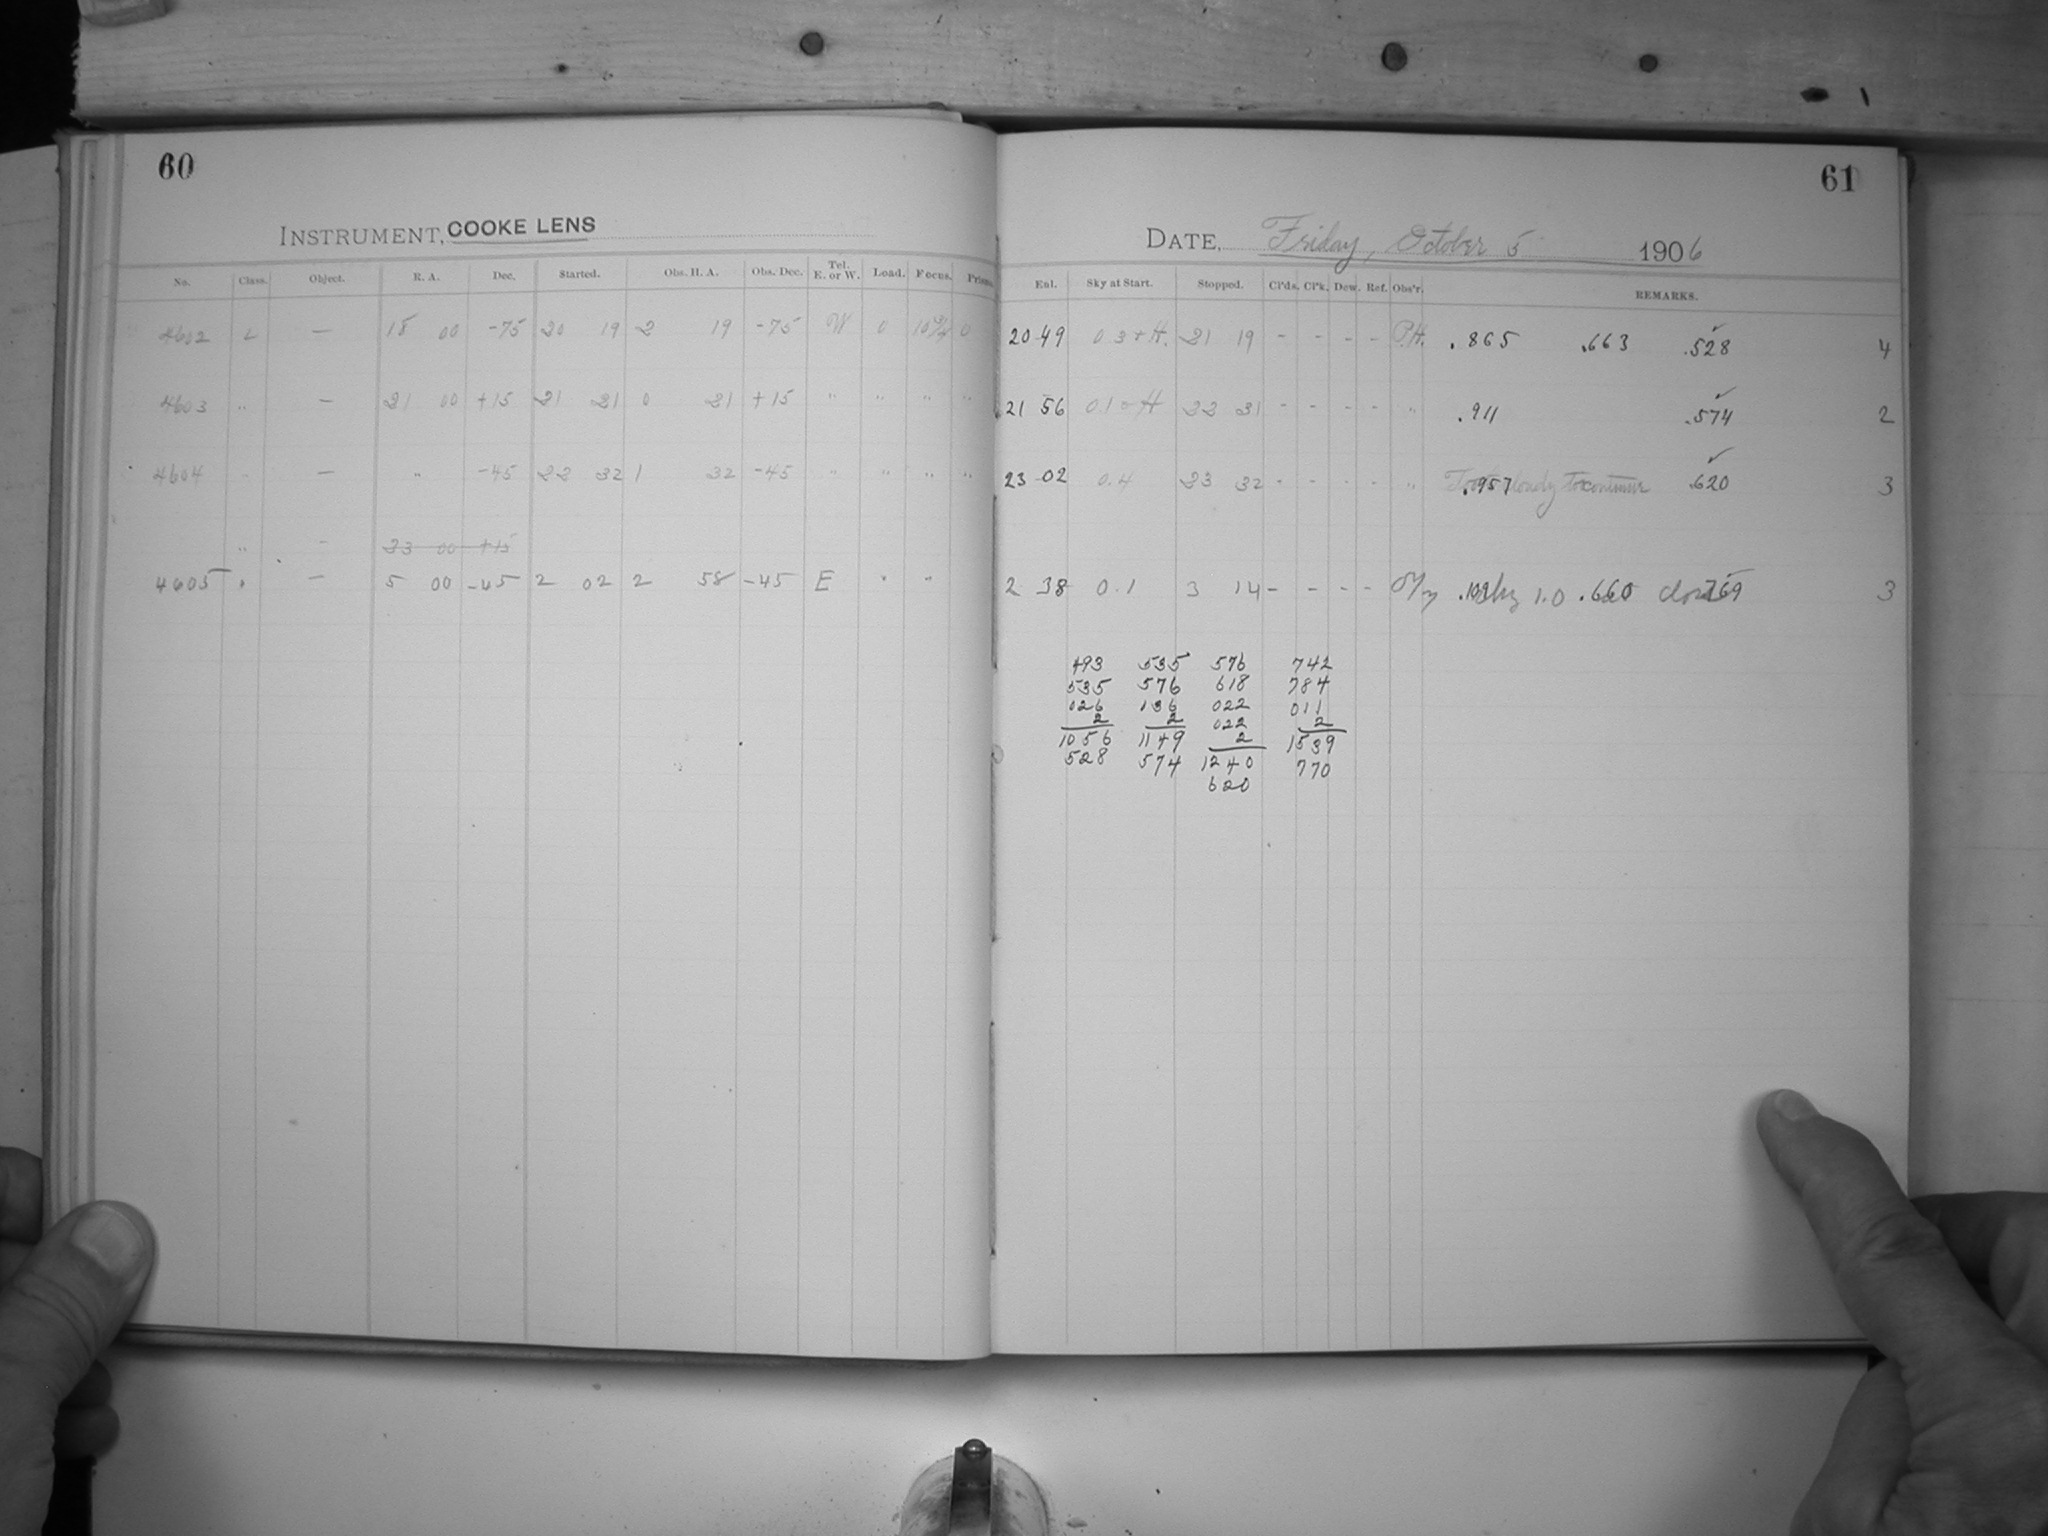 60
INSTRUMENT, COOKE LENS
No. Class. Object. R. A. Dec. Started. Obs. H. A. Obs. Dec. Tel. E. or W. Load. Focus. Prism.
4602 L — 18 00 -75 20 19 2 19 -75 W 0 0
4603 " — 21 00 +15 21 21 0 21 +15 " " " "
4604 " — " -45 22 32 1 32 -45 " " " "
" — 23 00 +15
4605 " — 5 00 -45 2 02 2 58 -45 E " "
61
DATE, Friday, October 5 1906
Enl. Sky at Start. Stopped. Cl'ds. Cl'k. Dew. Ref. Obs'r. REMARKS.
20 49 0.3 + H. 21 19 - - - - P.H. .865 .663 .528 4
21 56 22 31 - - - - " .911 .574 2
23 02 0.4 23 32 - - - - " Too cloudy to continue .957 .620 3
2 38 0.1 3 14 - - - - sky 1.0 .660 3
493 535 576 742
535 576 618 784
026 136 022 011
2 2 022 2
1056 1149 2 1539
528 574 1240 770
620